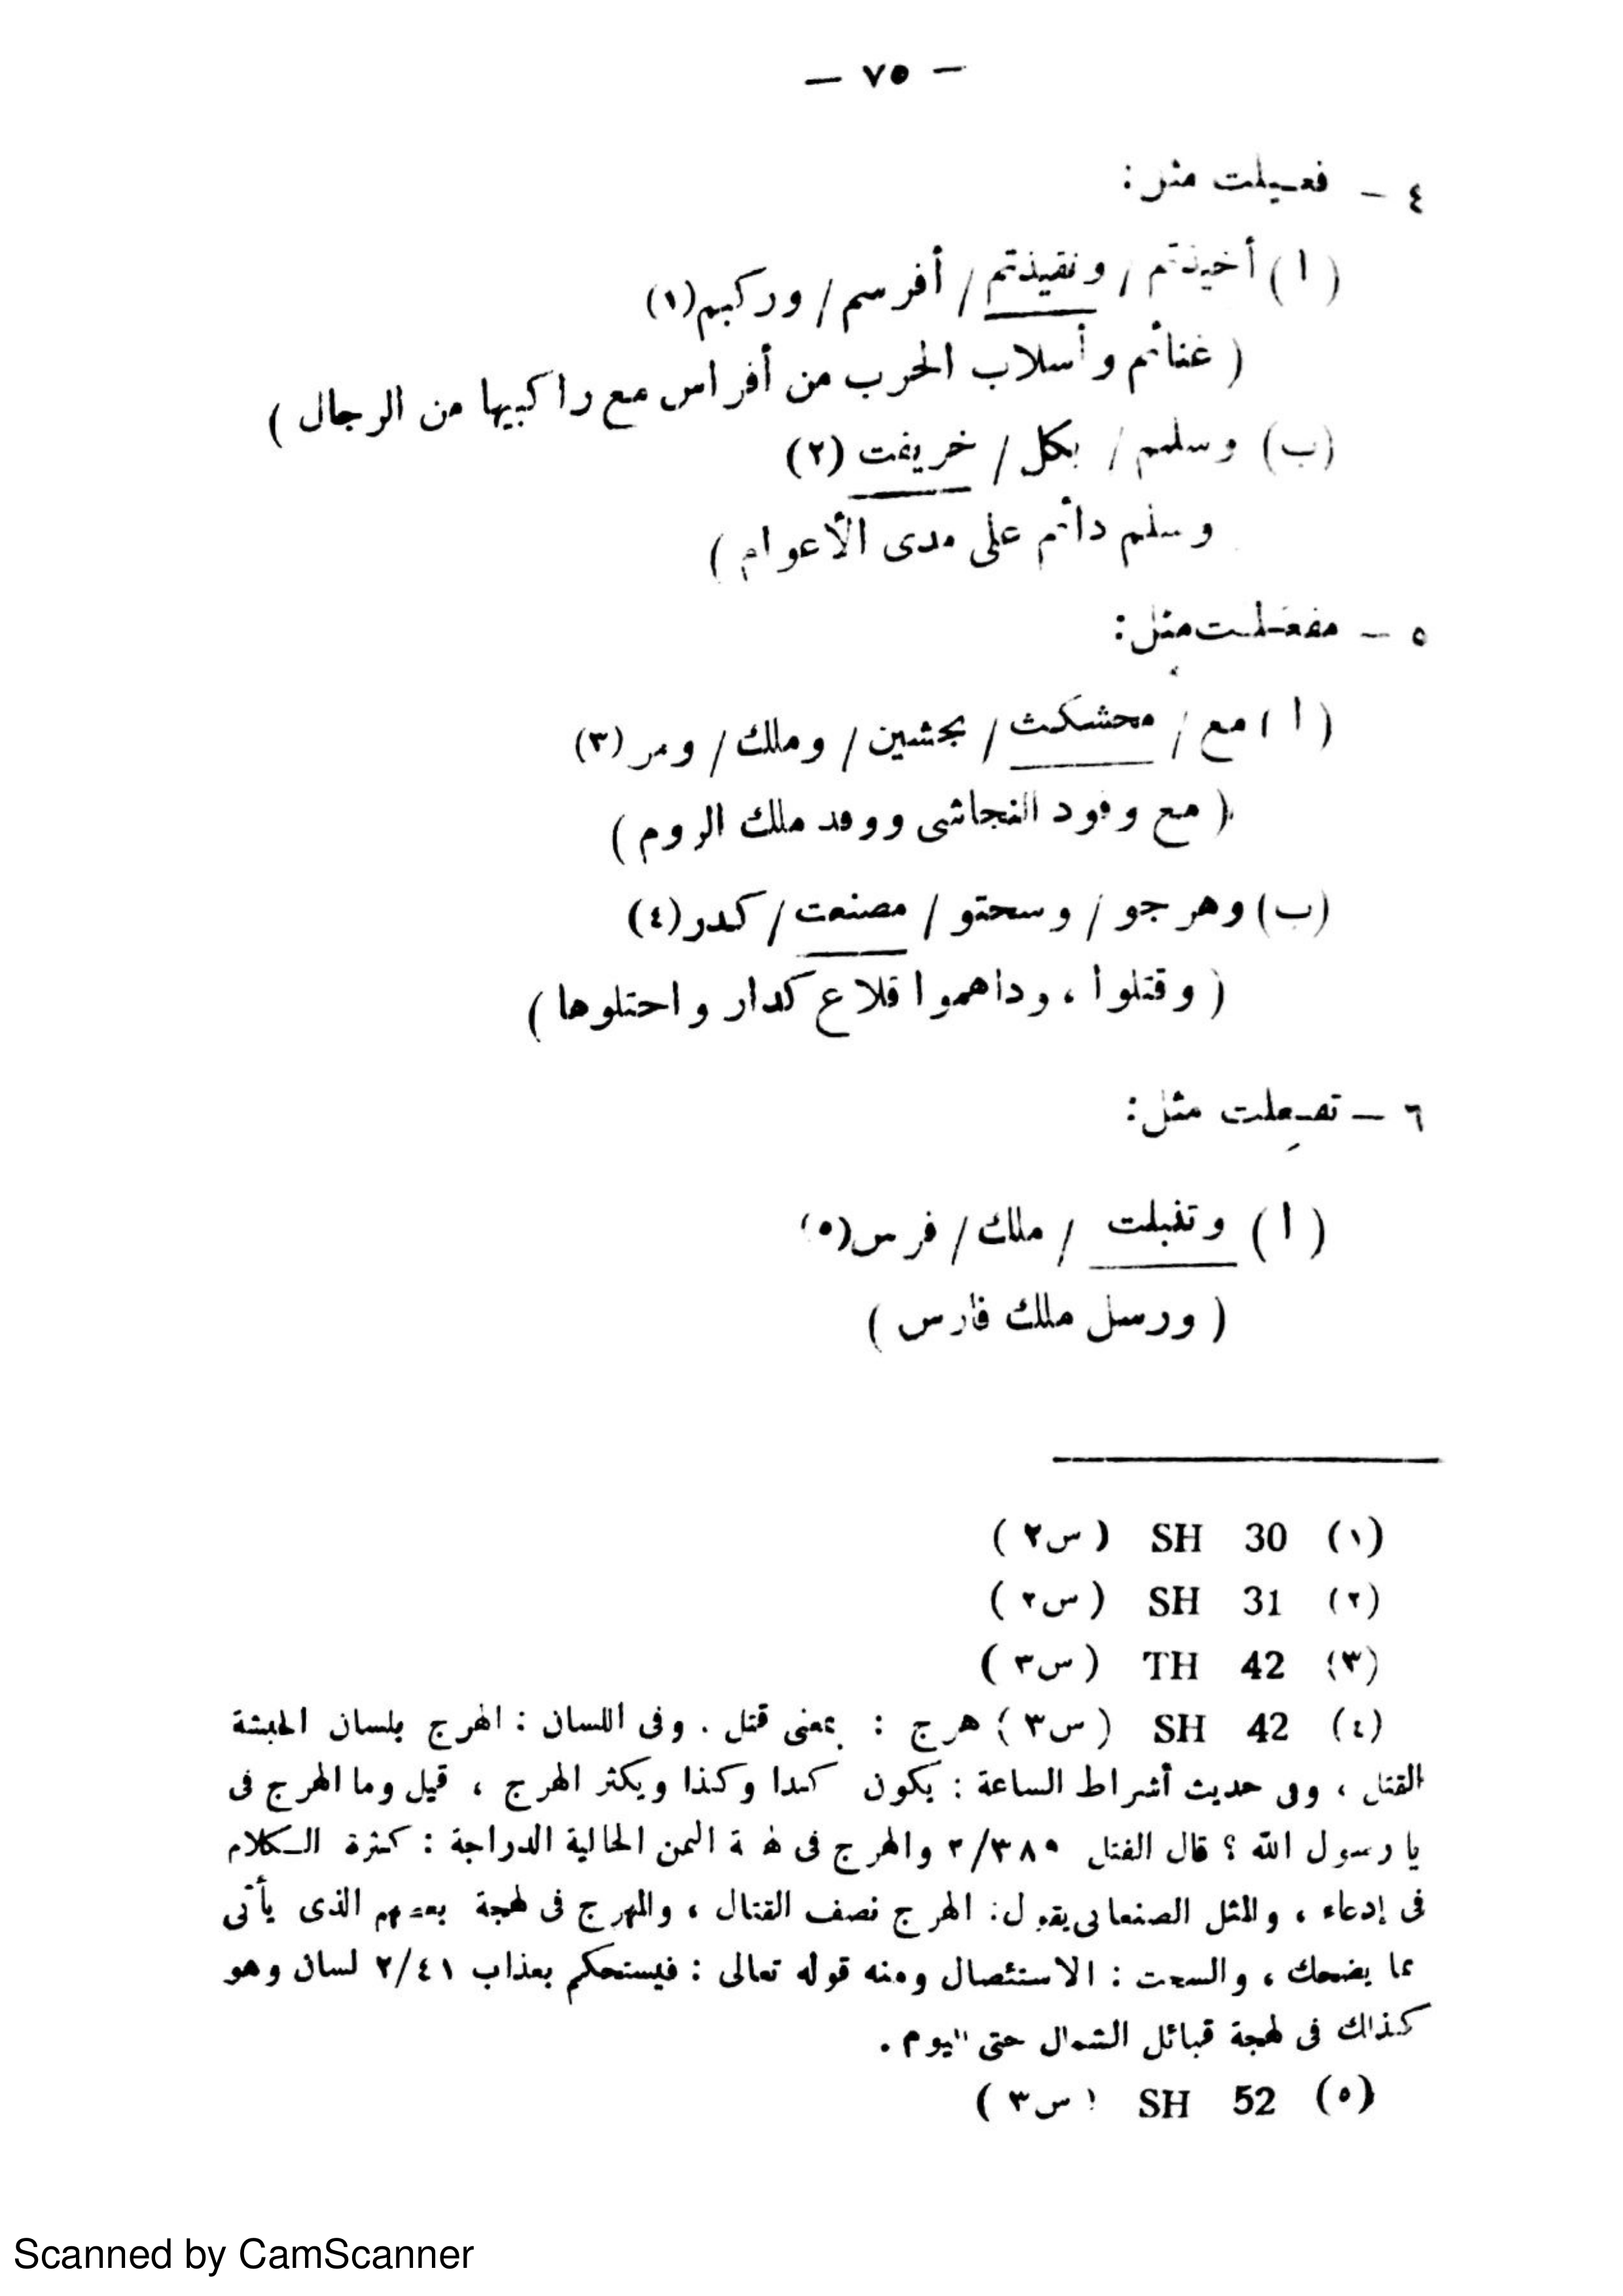 — ٧٥ —
٤ — فعيلت مثل:
( ا ) أخيذتم / ونقيذتم / أفرسم / وركبم (١)
( غنائم وأسلاب الحرب من أفراس مع راكبيها من الرجال )
(ب) وسلمم / بكل / خريفت (٢)
وسلم دائم على مدى الأعوام )
٥ — مفعلت مثل:
( ا ) مع / محشكث / بحشين / وملك / ومر (٣)
( مع وفود النجاشى ووفد ملك الروم )
(ب) وهرجو / وسحتو / مصنعت / كدر (٤)
( وقتلوا ، وداهموا قلاع كدار واحتلوها )
٦ — تفعلت مثل:
( ا ) وتنبلت / ملك / فرس (٥)
( ورسل ملك فارس )
(١) SH 30 ( س٢ )
(٢) SH 31 ( س٢ )
(٣) TH 42 ( س٣ )
(٤) SH 42 ( س٣ ) هرج : بمعنى قتل . وفى اللسان : الهرج بلسان الحبشة
القتل ، وفى حديث أشراط الساعة : يكون كذا وكذا ويكثر الهرج ، قيل وما الهرج فى
يا رسول الله ؟ قال القتل ٢/٣٨٩ والهرج فى اليمن الحالية الدراجة : كثرة الكلام
فى إدعاء ، والمثل الصنعانى يقول : الهرج نصف القتال ، والمهرج فى لهجة بعضهم الذى يأتى
بما يضحك ، والسحت : الاستئصال ومنه قوله تعالى : فيستحكم بعذاب ٢/٤١ لسان وهو
كذلك فى لهجة قبائل الشمال حتى اليوم .
(٥) SH 52 ( س٣ )
Scanned by CamScanner